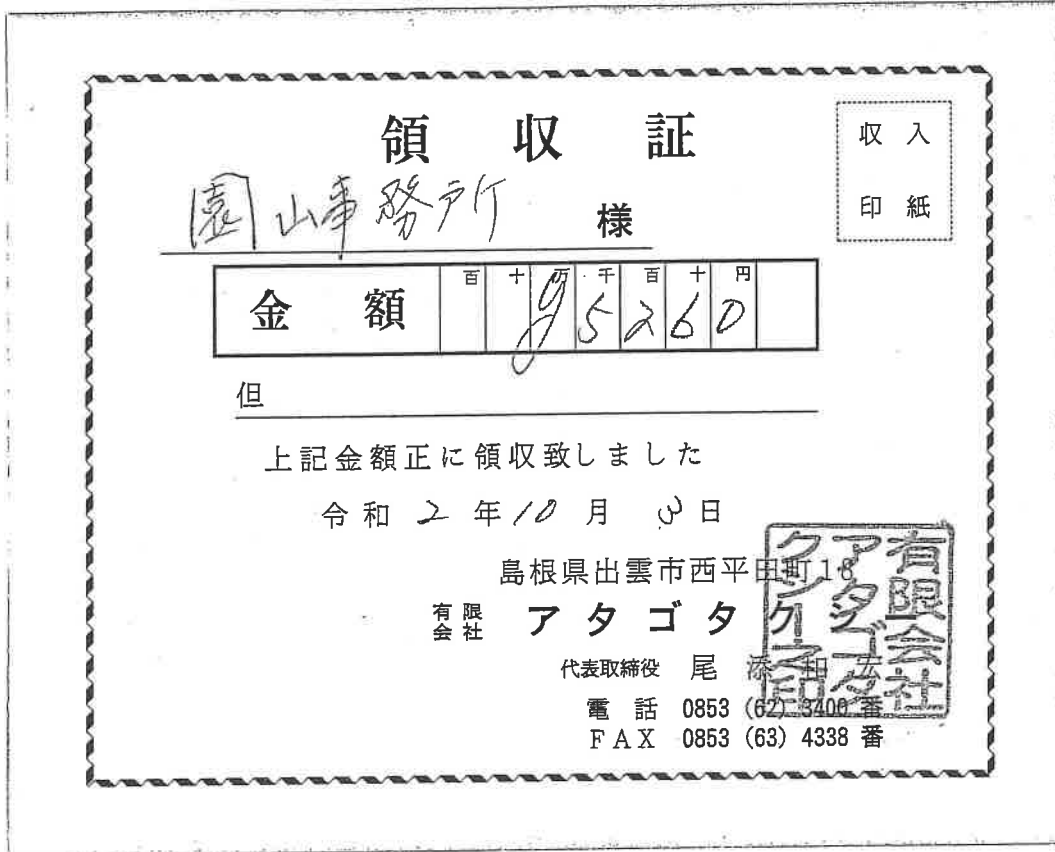 領収証
収入
印紙
園山事務所 様
金額 百 十 万 千 百 十 円
95260
但
上記金額正に領収致しました
令和 2 年 10 月 3 日
島根県出雲市西平田町18
有限会社 アタゴタクシー
代表取締役 尾添和宏
電話 0853 (62) 3400 番
FAX 0853 (63) 4338 番
有限会社アタゴタクシー之印